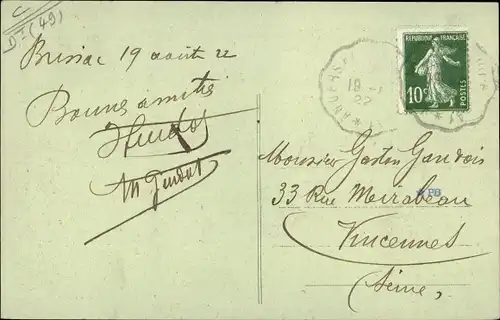 Dt (49)
Brissac 19 août 22
Bonnes amitiés
RÉPUBLIQUE FRANÇAISE
10c
POSTES
19
22
Monsieur Gaston Gaudois
33 Rue Mirabeau
PB
Vincennes
(Seine)